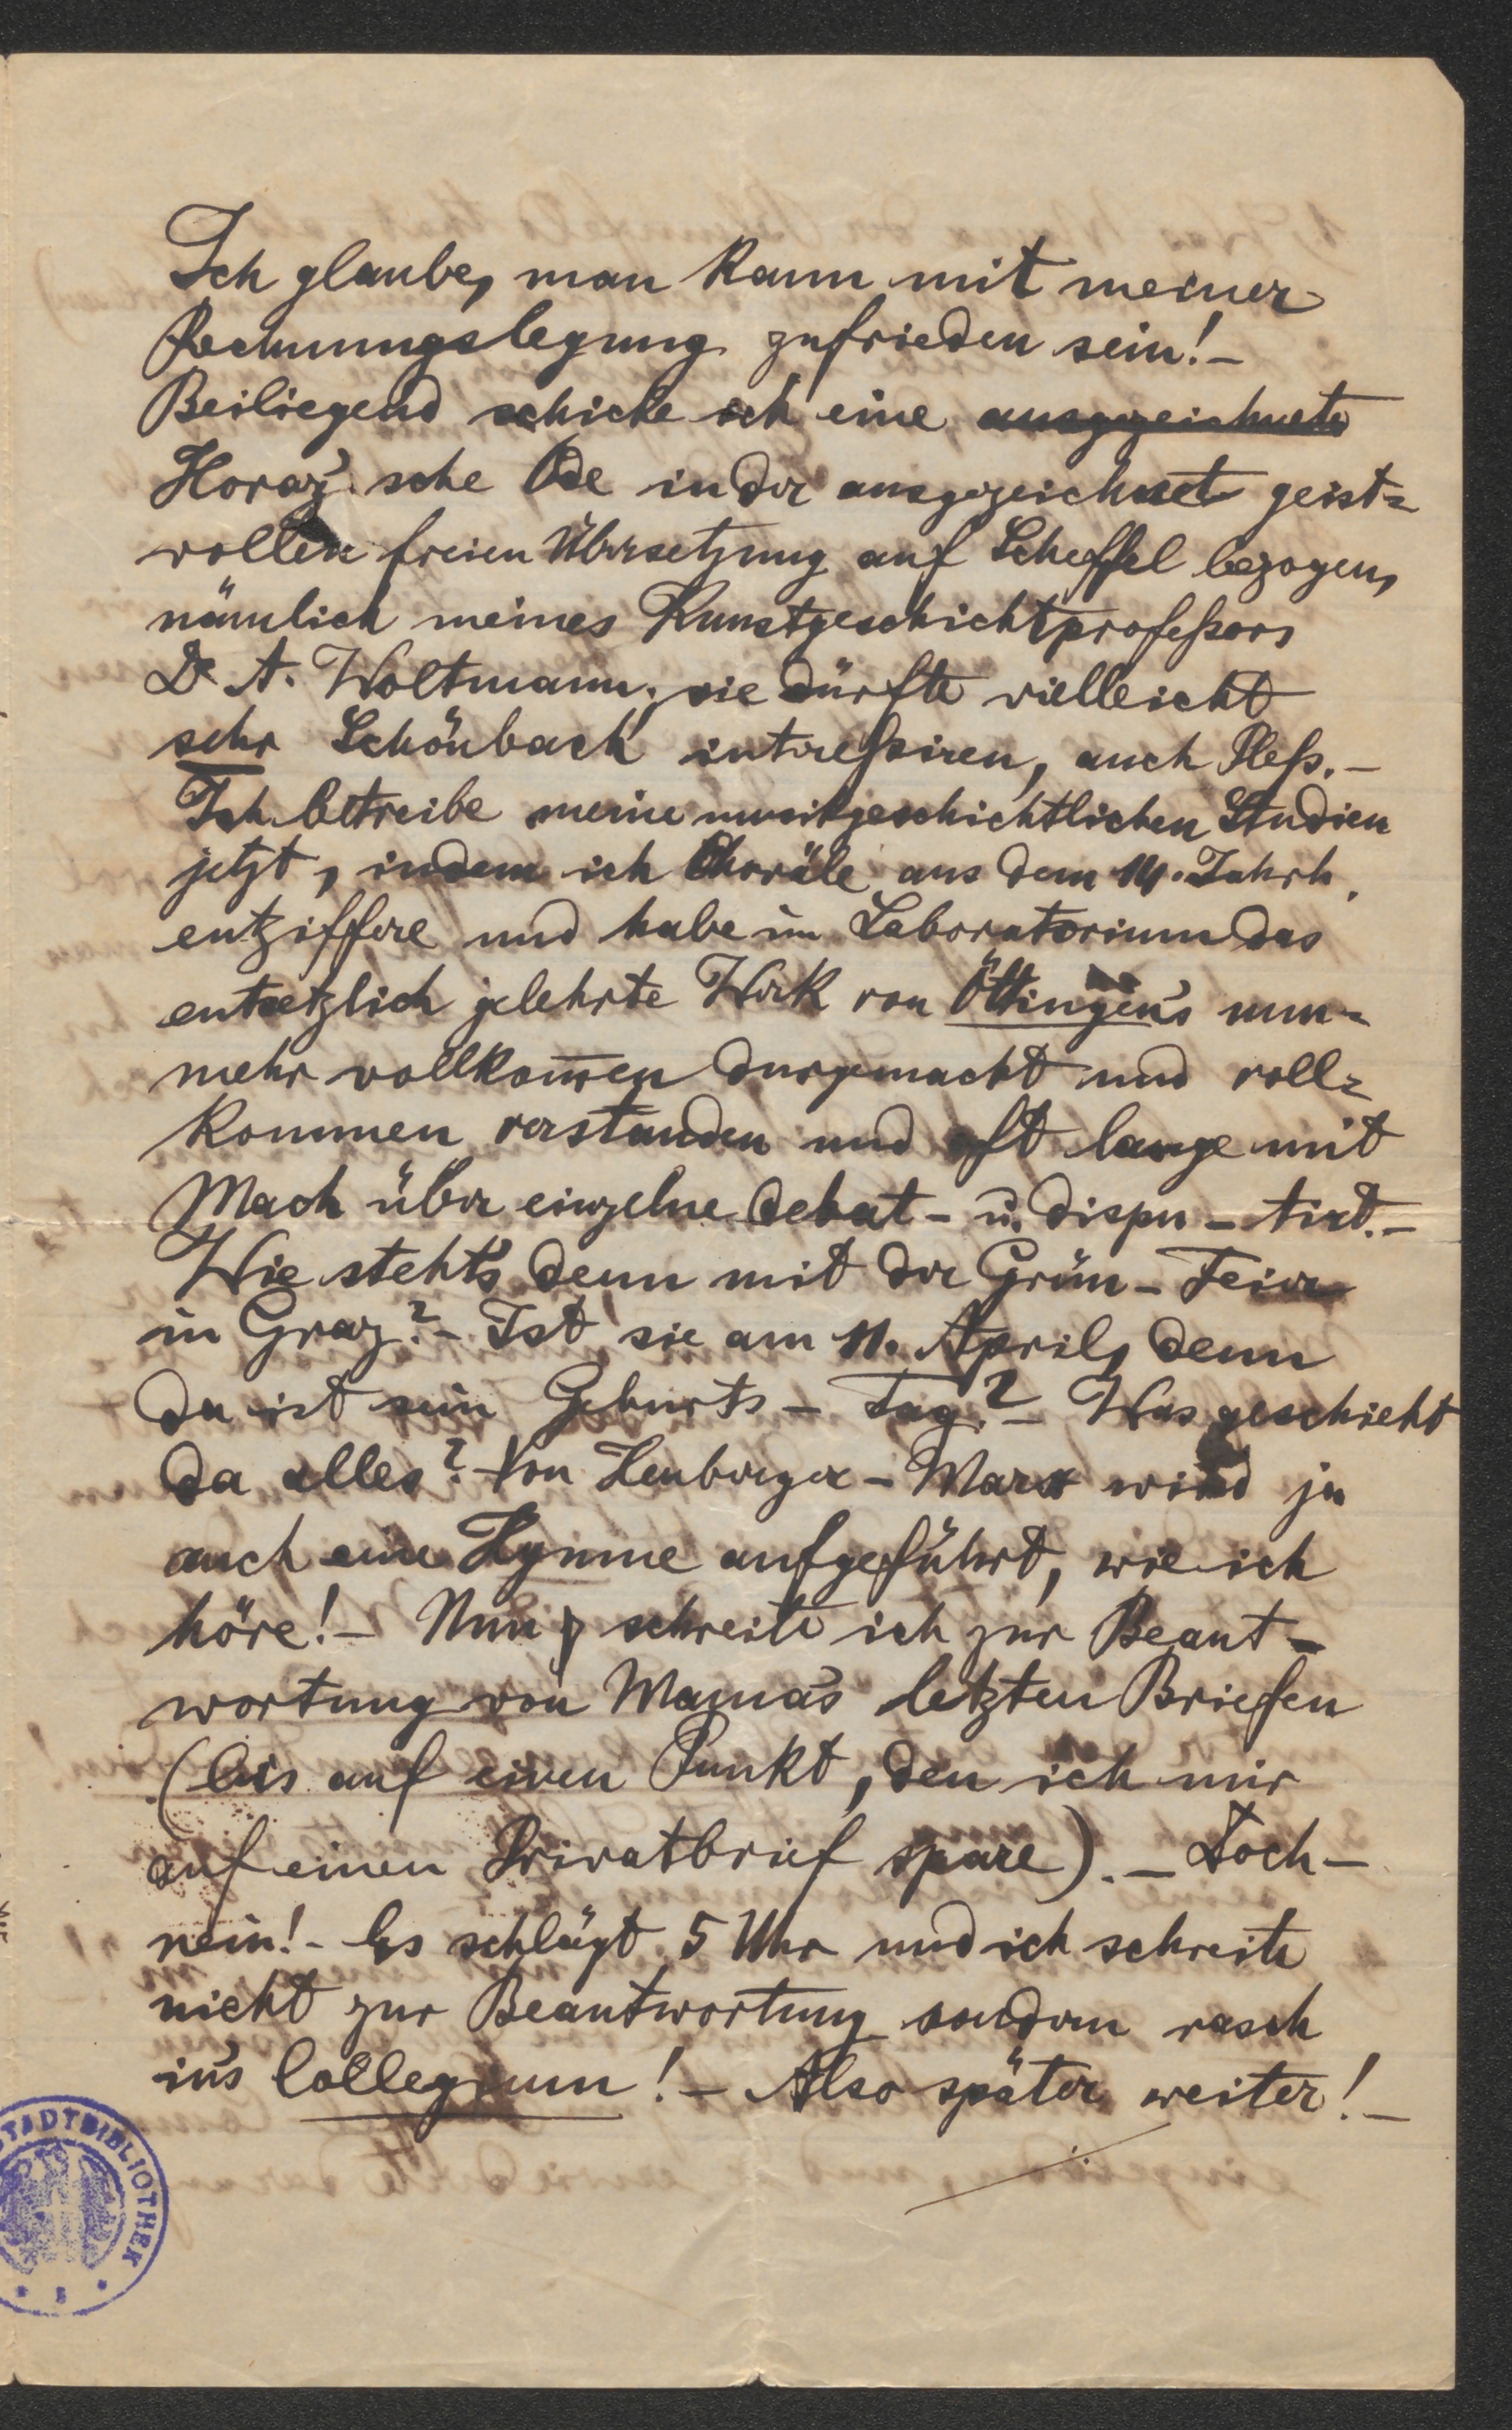 Ich glaube, man kann mit meiner
Rechnungslegung zufrieden sein! –
Beiliegend schicke ich eine ausgezeichnete
Horaz'sche Ode in der ausgezeichnet geist=
vollen freien Übersetzung auf Scheffel bezogen,
nämlich meines Kunstgeschichtprofeßors
Dr A. Woltmann; sie dürfte vielleicht
sehr Schönbach intereßiren, auch Pleß. –
Ich betreibe meine musikgeschichtlichen Studien
jetzt, indem ich Choräle aus dem 14. Jahrh.
entziffere und habe im Laboratorium das
entsetzlich gelehrte Werk von Öttingen's nun=
mehr vollkom̅en durgemacht und voll=
kommen verstanden und oft lange mit
Mach über einzelne debat – u. dispu – tirt. –
Wie steht's denn mit der Grün – Feier
in Graz? – Ist sie am 11. April, denn
da ist sein Geburts – Tag? – Was geschieht
da alles? Von Heuberger – Marx wird ja
auch eine Hymne aufgeführt, wie ich
höre! – Nun schreite ich zur Beant –
wortung von Mama's letzten Briefen
(bis auf einen Punkt, den ich mir
auf einen Privatbrief spare). – Doch –
nein! – Es schlägt 5 Uhr und ich schreite
nicht zur Beantwortung sondern rasch
in's Collegium! – Also später weiter! –
STADTBIBLIOTHEK